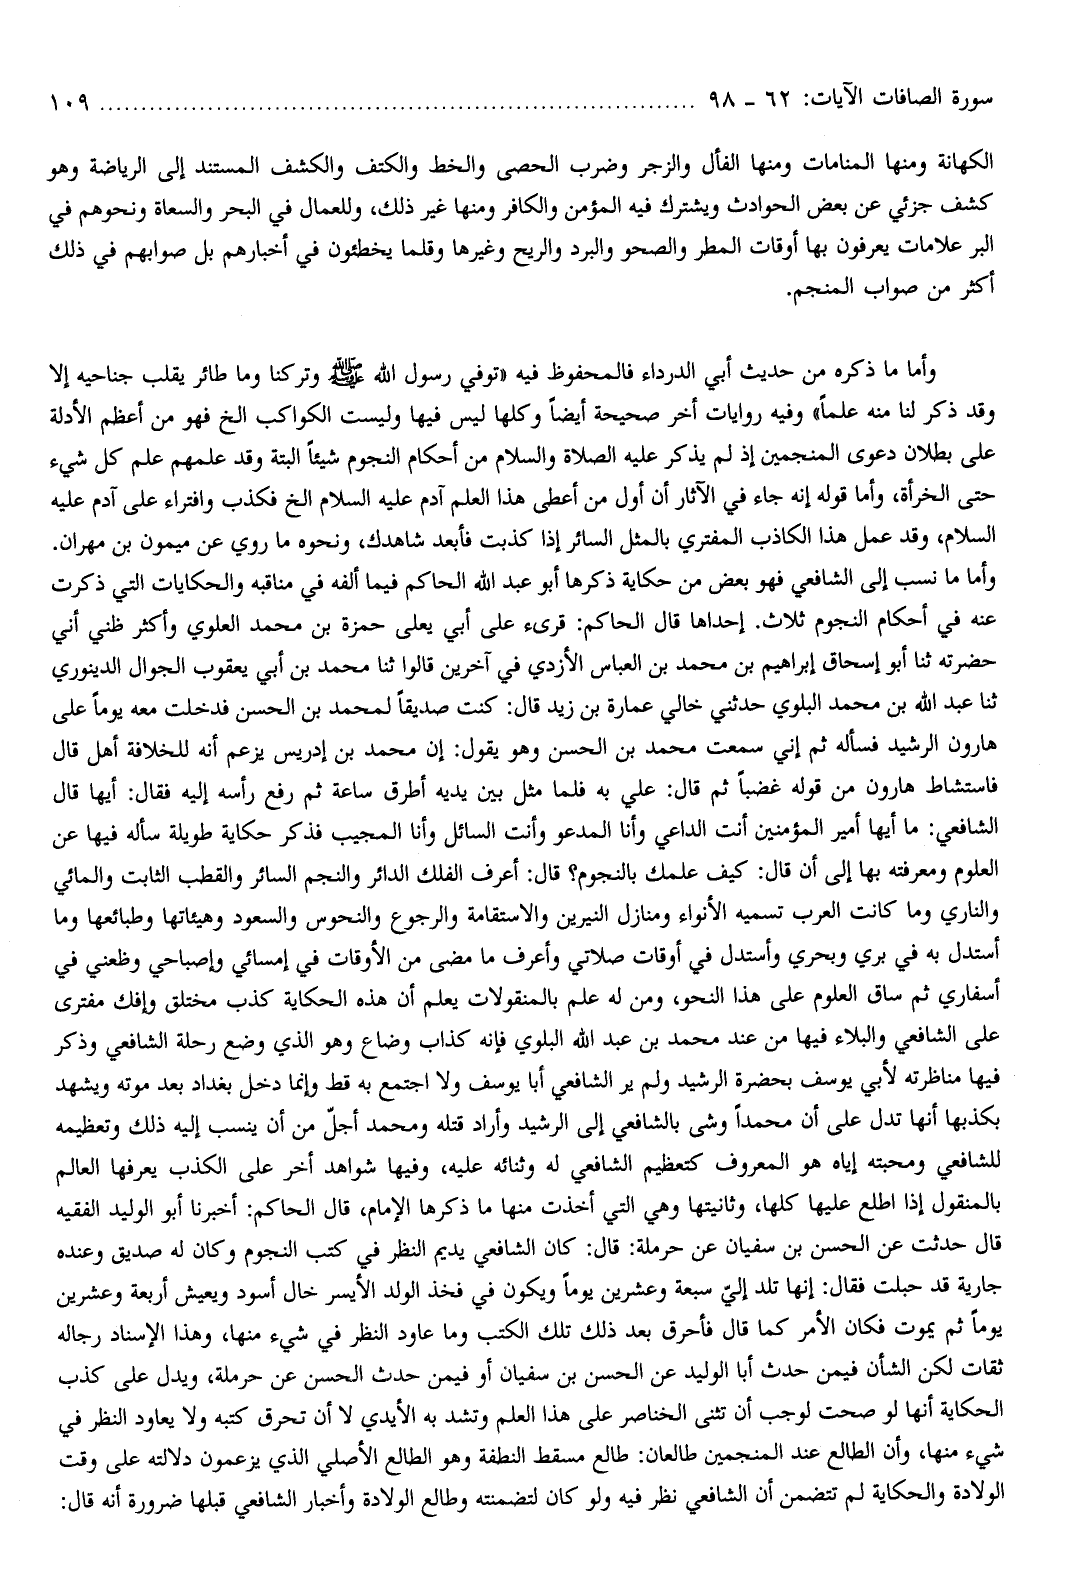 سورة الصافات الآيات: ٦٢ ـ ٩٨ ........................................................................ ١٠٩
الكهانة ومنها المنامات ومنها الفأل والزجر وضرب الحصى والخط والكتف والكشف المستند إلى الرياضة وهو
كشف جزئي عن بعض الحوادث ويشترك فيه المؤمن والكافر ومنها غير ذلك، وللعمال في البحر والسعاة ونحوهم في
البر علامات يعرفون بها أوقات المطر والصحو والبرد والريح وغيرها وقلما يخطئون في أخبارهم بل صوابهم في ذلك
أكثر من صواب المنجم.
وأما ما ذكره من حديث أبي الدرداء فالمحفوظ فيه «توفي رسول الله ﷺ وتركنا وما طائر يقلب جناحيه إلا
وقد ذكر لنا منه علماً» وفيه روايات أخر صحيحة أيضاً وكلها ليس فيها وليست الكواكب الخ فهو من أعظم الأدلة
على بطلان دعوى المنجمين إذ لم يذكر عليه الصلاة والسلام من أحكام النجوم شيئاً البتة وقد علمهم علم كل شيء
حتى الخرأة، وأما قوله إنه جاء في الآثار أن أول من أعطى هذا العلم آدم عليه السلام الخ فكذب وافتراء على آدم عليه
السلام، وقد عمل هذا الكاذب المفتري بالمثل السائر إذا كذبت فأبعد شاهدك، ونحوه ما روي عن ميمون بن مهران.
وأما ما نسب إلى الشافعي فهو بعض من حكاية ذكرها أبو عبد الله الحاكم فيما ألفه في مناقبه والحكايات التي ذكرت
عنه في أحكام النجوم ثلاث. إحداها قال الحاكم: قرىء على أبي يعلى حمزة بن محمد العلوي وأكثر ظني أني
حضرته ثنا أبو إسحاق إبراهيم بن محمد بن العباس الأزدي في آخرين قالوا ثنا محمد بن أبي يعقوب الجوال الدينوري
ثنا عبد الله بن محمد البلوي حدثني خالي عمارة بن زيد قال: كنت صديقاً لمحمد بن الحسن فدخلت معه يوماً على
هارون الرشيد فسأله ثم إني سمعت محمد بن الحسن وهو يقول: إن محمد بن إدريس يزعم أنه للخلافة أهل قال
فاستشاط هارون من قوله غضباً ثم قال: علي به فلما مثل بين يديه أطرق ساعة ثم رفع رأسه إليه فقال: أيها قال
الشافعي: ما أيها أمير المؤمنين أنت الداعي وأنا المدعو وأنت السائل وأنا المجيب فذكر حكاية طويلة سأله فيها عن
العلوم ومعرفته بها إلى أن قال: كيف علمك بالنجوم؟ قال: أعرف الفلك الدائر والنجم السائر والقطب الثابت والمائي
والناري وما كانت العرب تسميه الأنواء ومنازل النيرين والاستقامة والرجوع والنحوس والسعود وهيئاتها وطبائعها وما
أستدل به في بري وبحري وأستدل في أوقات صلاتي وأعرف ما مضى من الأوقات في إمسائي وإصباحي وظعني في
أسفاري ثم ساق العلوم على هذا النحو، ومن له علم بالمنقولات يعلم أن هذه الحكاية كذب مختلق وإفك مفترى
على الشافعي والبلاء فيها من عند محمد بن عبد الله البلوي فإنه كذاب وضاع وهو الذي وضع رحلة الشافعي وذكر
فيها مناظرته لأبي يوسف بحضرة الرشيد ولم ير الشافعي أبا يوسف ولا اجتمع به قط وإنما دخل بغداد بعد موته ويشهد
بكذبها أنها تدل على أن محمداً وشى بالشافعي إلى الرشيد وأراد قتله ومحمد أجلّ من أن ينسب إليه ذلك وتعظيمه
للشافعي ومحبته إياه هو المعروف كتعظيم الشافعي له وثنائه عليه، وفيها شواهد أخر على الكذب يعرفها العالم
بالمنقول إذا اطلع عليها كلها، وثانيتها وهي التي أخذت منها ما ذكرها الإمام، قال الحاكم: أخبرنا أبو الوليد الفقيه
قال حدثت عن الحسن بن سفيان عن حرملة: قال: كان الشافعي يديم النظر في كتب النجوم وكان له صديق وعنده
جارية قد حبلت فقال: إنها تلد إليّ سبعة وعشرين يوماً ويكون في فخذ الولد الأيسر خال أسود ويعيش أربعة وعشرين
يوماً ثم يموت فكان الأمر كما قال فأحرق بعد ذلك تلك الكتب وما عاود النظر في شيء منها، وهذا الإسناد رجاله
ثقات لكن الشأن فيمن حدث أبا الوليد عن الحسن بن سفيان أو فيمن حدث الحسن عن حرملة، ويدل على كذب
الحكاية أنها لو صحت لوجب أن تثنى الخناصر على هذا العلم وتشد به الأيدي لا أن تحرق كتبه ولا يعاود النظر في
شيء منها، وأن الطالع عند المنجمين طالعان: طالع مسقط النطفة وهو الطالع الأصلي الذي يزعمون دلالته على وقت
الولادة والحكاية لم تتضمن أن الشافعي نظر فيه ولو كان لتضمنته وطالع الولادة وأخبار الشافعي قبلها ضرورة أنه قال: